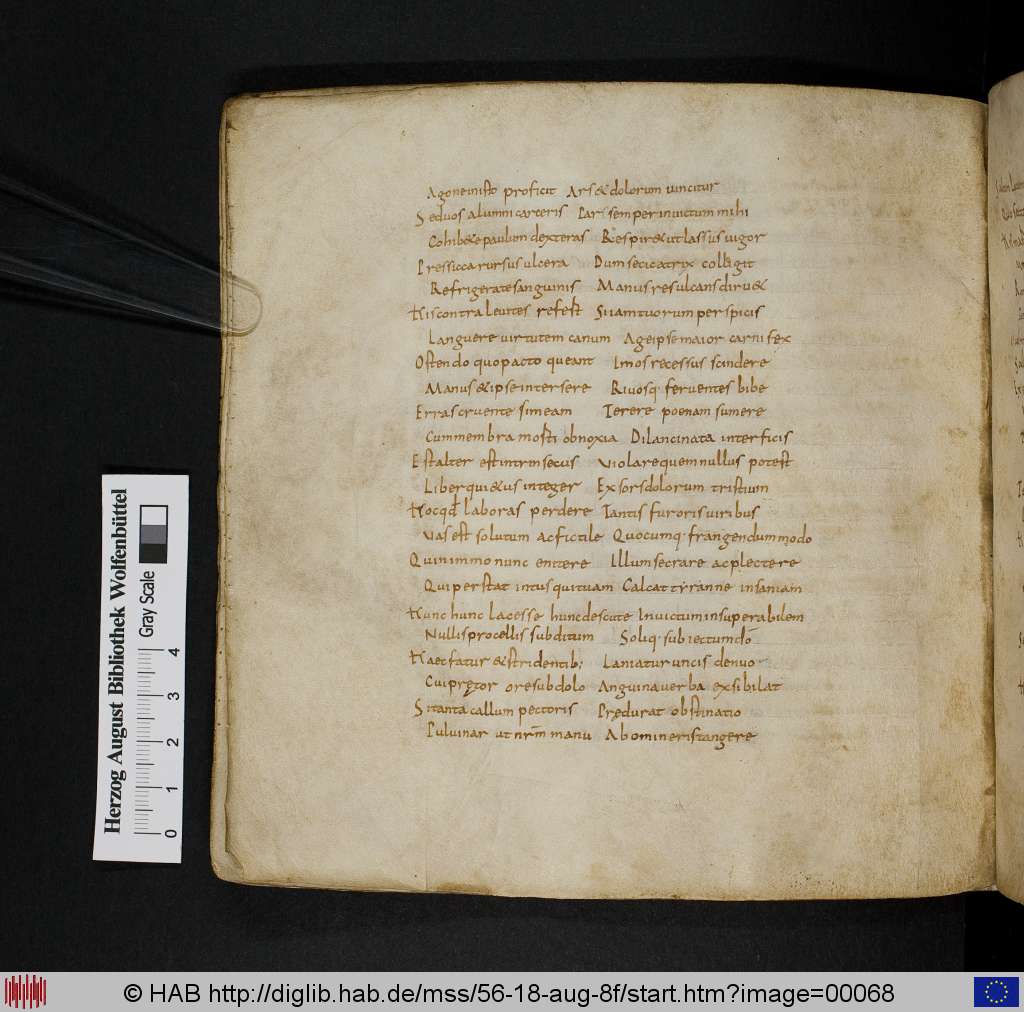 Agone in isto proficit Ars & dolorum vincitur
Sed vos alumni carceris Par semper invictum mihi
Cohib&e paulum dexteras Respir& ut lassus vigor
Pressicca rursus ulcera Dum se cicatrix colligit
Refrigerate sanguinis Manus resulcans diru&
His contra levites refest Si iam tuorum perspicis
Languere virtutem canum Age ipse maior carnifex
Ostendo quo pacto queant Imos recessus scindere
Manus & ipse intersere Rivosq· ferventes bibe
Erras cruente si meam Te rere poenam sumere
Cum membra mosti obnoxia Dilancinata interficis
Est alter est intrinsecus Violare quem nullus potest
Liber qui&us integer Exsors dolorum tristium
Hoc qd laboras perdere Tantis furoris viribus
Vas est solutum ac fictile Quocumq· frangendum modo
Quin immo nunc enitere Illum secrare ac plectere
Qui perstat intus qui tuam Calcat tyranne insaniam
Hunc hunc lacesse hunc descute Invictum insuperabilem
Nullis procellis subditum Soliq· subiectum dō
Haec fatur & stridentib; Laniatur uncis denuo
Cui prętor ore subdolo Anguina verba exsibilat
Si tanta callum pectoris Prędurat obstinatio
Pulvinar ut nrm̄ manu Abomineris tangere
Herzog August Bibliothek Wolfenbüttel
Gray Scale
0 1 2 3 4
© HAB http://diglib.hab.de/mss/56-18-aug-8f/start.htm?image=00068